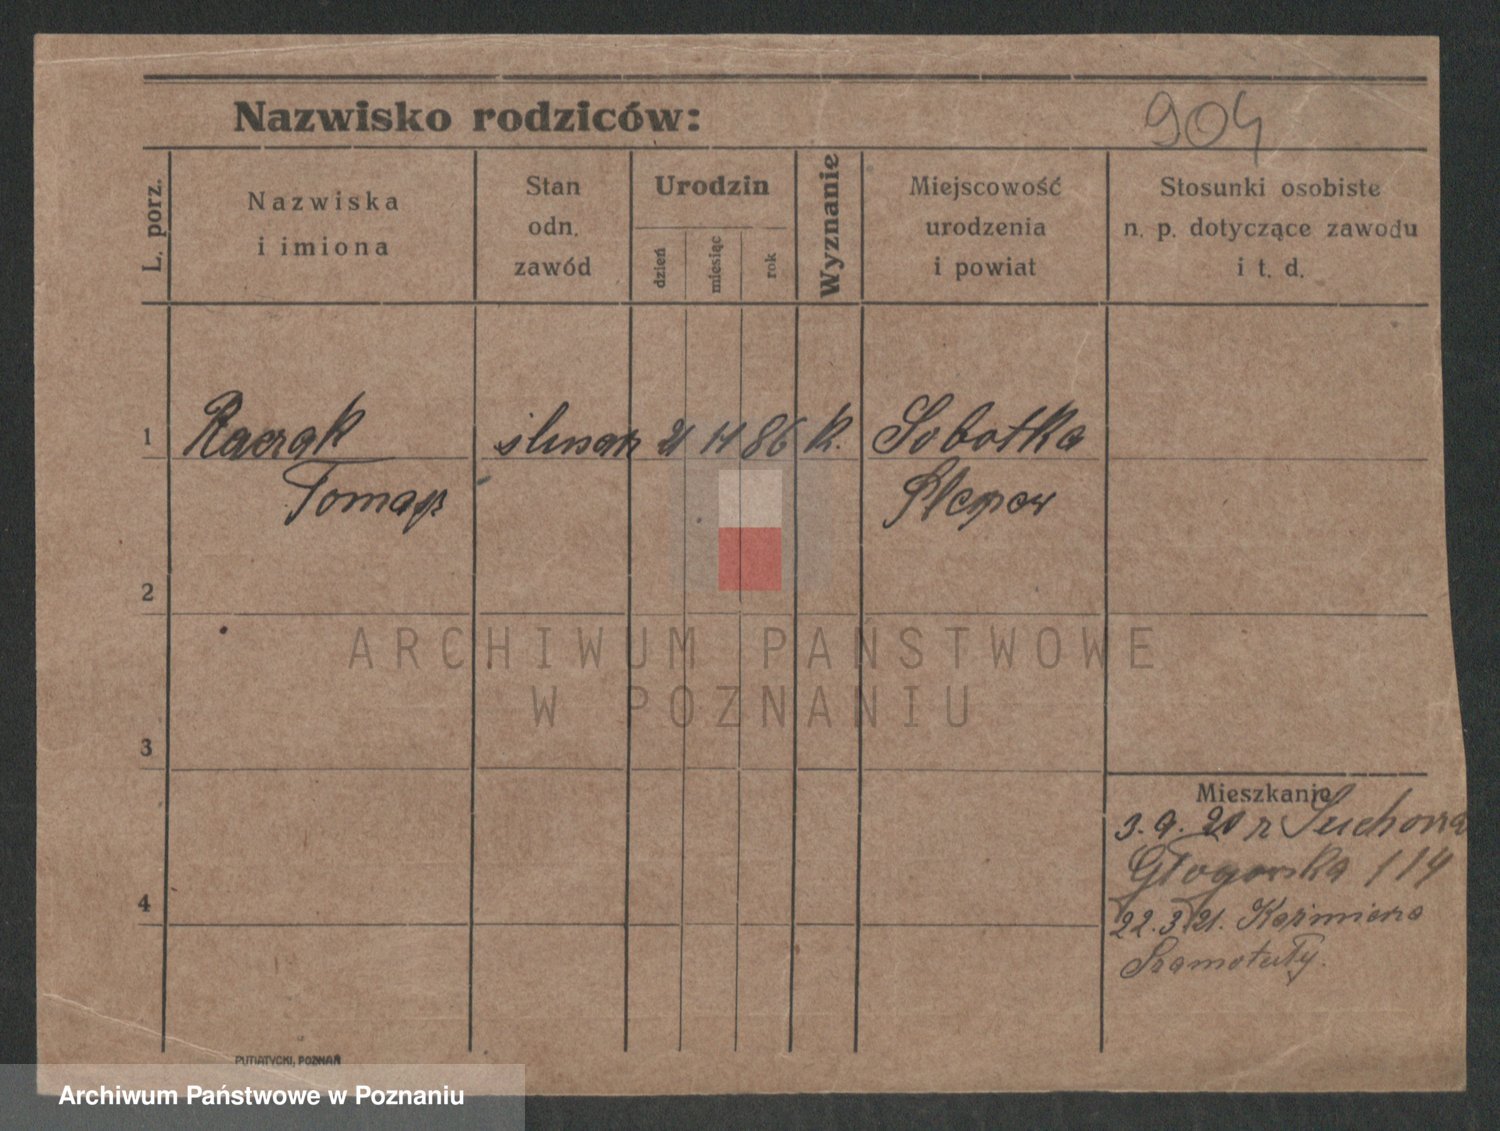 Nazwisko rodziców:
904
L. porz.
Nazwiska
i imiona
Stan
odn.
zawód
Urodzin
dzień
miesiąc
rok
Wyznanie
Miejscowość
urodzenia
i powiat
Stosunki osobiste
n. p. dotyczące zawodu
i t. d.
1
Raczak
ślusarz
21
11
86
k.
Sobotka
Tomasz
Pleszew
2
ARCHIWUM PAŃSTWOWE
W POZNANIU
3
Mieszkanie
3. 9. 20 z
Głogowska 114
4
22. 3. 21. Kaźmierz
Szamotuły.
PUTIATYCKI, POZNAŃ
Archiwum Państwowe w Poznaniu